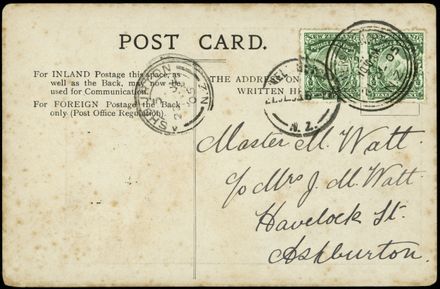 POST CARD.
For INLAND Postage this space, as
well as the Back, may now be
used for Communication.
For FOREIGN Postage the Back
only (Post Office Regulation).
THE ADDRESS ON
WRITTEN HE
NEW ZEALAND
N.Z
N.Z.
Master M. Watt.
c/o Mrs J. M. Watt.
Havelock St.
Ashburton.